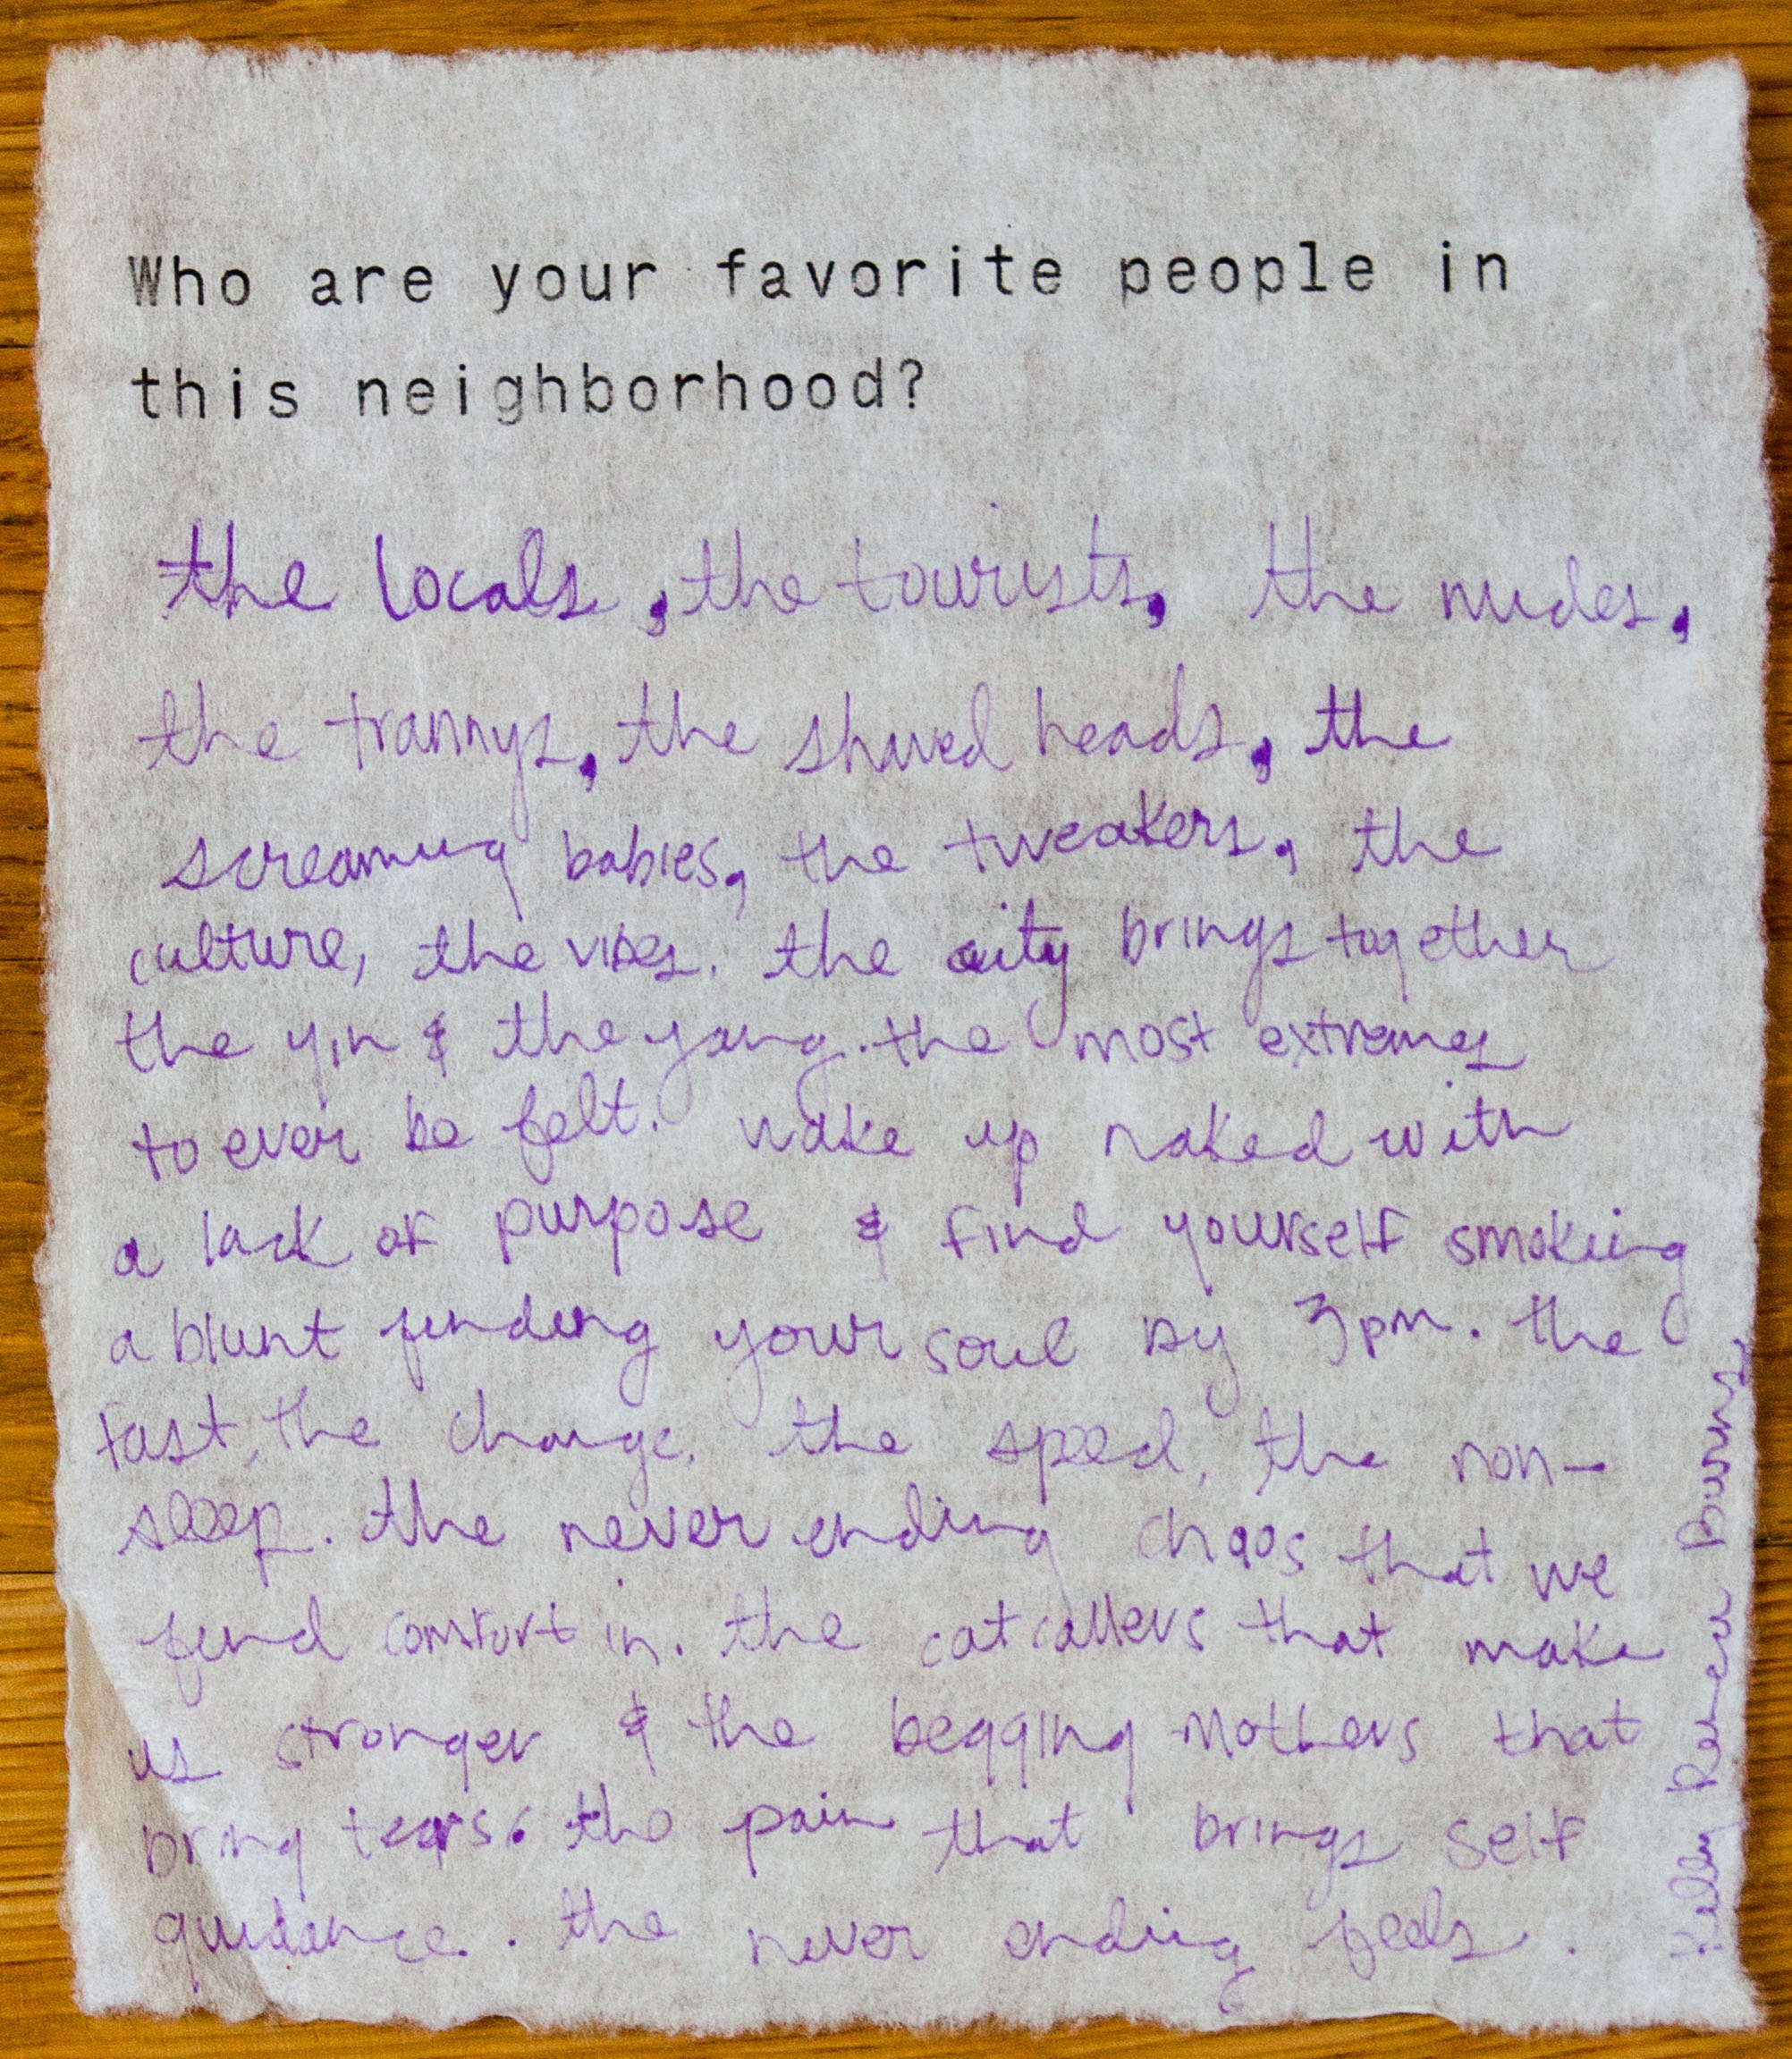 Who are your favorite people in
this neighborhood?
the locals, the tourists, the nudes,
the trannys, the shaved heads, the
screaming babies, the tweakers, the
culture, the vibes. the city brings together
the yin & the yang. the most extremes
to ever be felt. wake up naked with
a lack of purpose & find yourself smoking
a blunt finding your soul by 3pm. the
fast, the change. the speed, the non-
sleep. the never ending chaos that we
find comfort in. the catcallers that make
us stronger & the begging mothers that
bring tears. the pain that brings self
guidance. the never ending feels.
Kelly Renea Burns